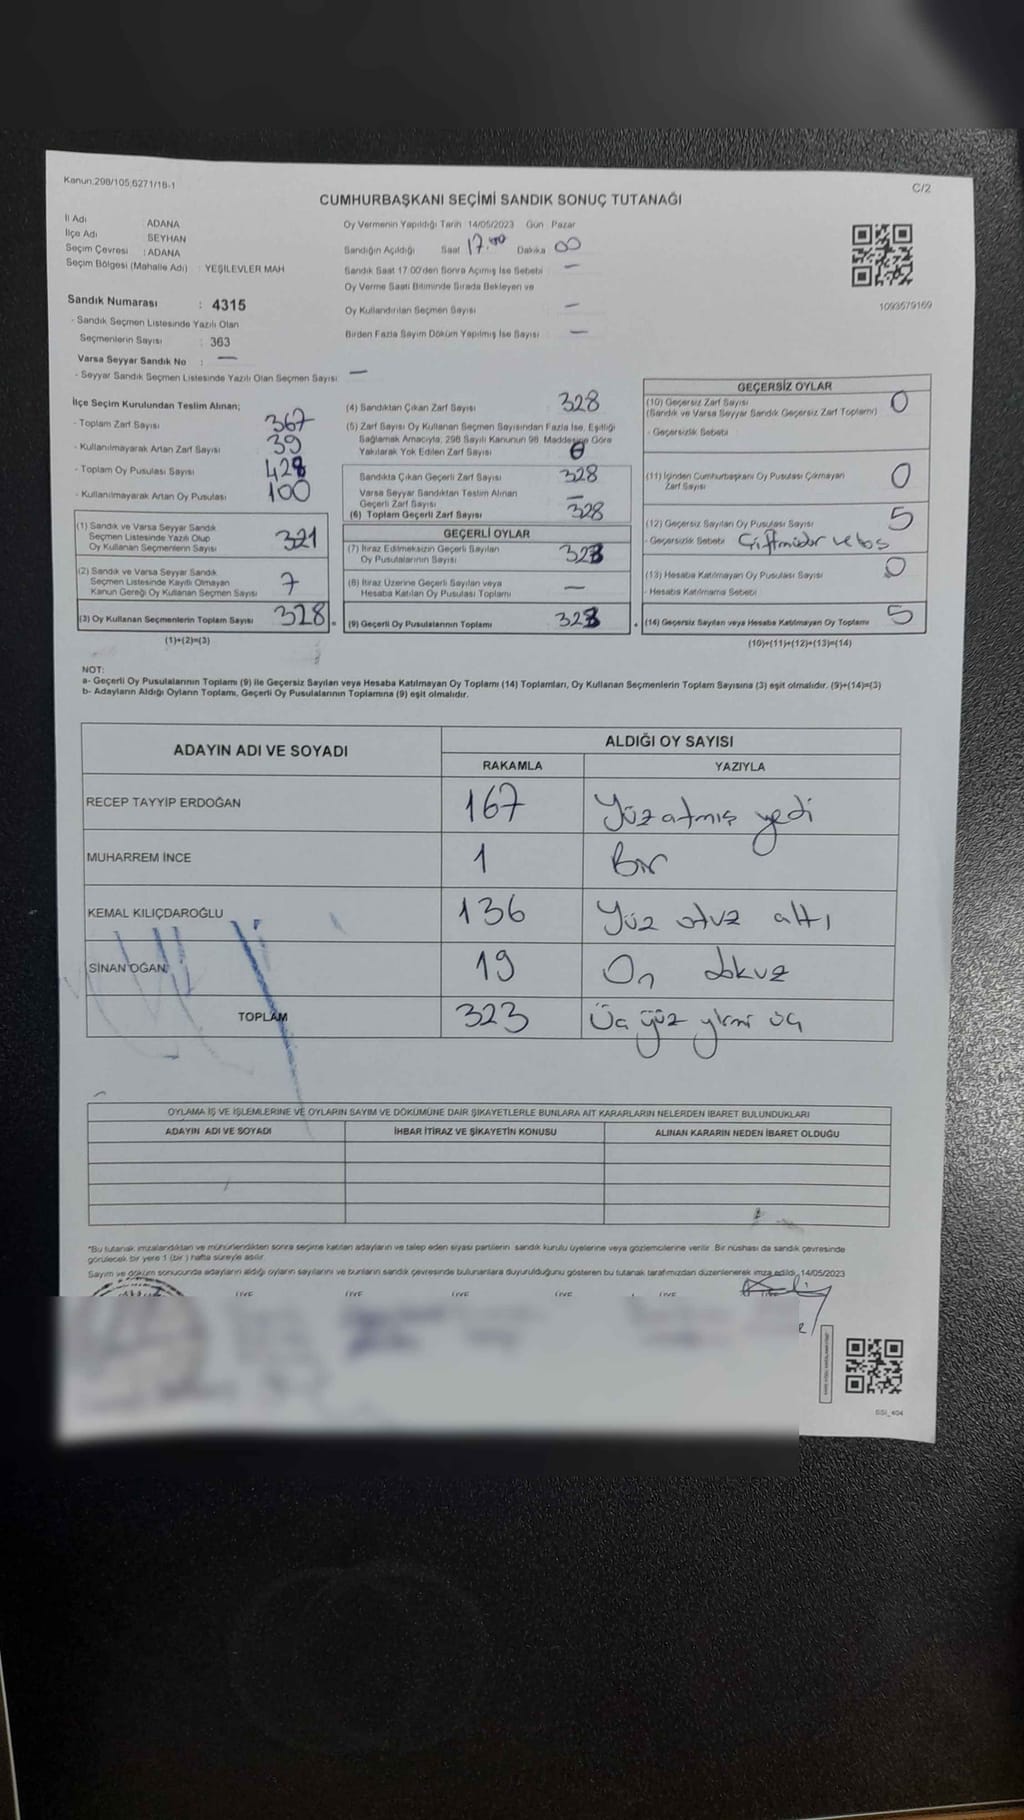 Kanun:298/105,6271/18-1
C/2
CUMHURBAŞKANI SEÇİMİ SANDIK SONUÇ TUTANAĞI
İl Adı ADANA
İlçe Adı SEYHAN
Seçim Çevresi : ADANA
Seçim Bölgesi (Mahalle Adı) : YEŞİLEVLER MAH
Sandık Numarası : 4315
- Sandık Seçmen Listesinde Yazılı Olan
Seçmenlerin Sayısı : 363
Varsa Seyyar Sandık No : —
- Seyyar Sandık Seçmen Listesinde Yazılı Olan Seçmen Sayısı: —
Oy Vermenin Yapıldığı Tarih 14/05/2023 Gün Pazar
Sandığın Açıldığı Saat 17.00 Dakika 00
Sandık Saat 17.00'den Sonra Açılmış İse Sebebi —
Oy Verme Saati Bitiminde Sırada Bekleyen ve
Oy Kullandırılan Seçmen Sayısı —
Birden Fazla Sayım Döküm Yapılmış İse Sayısı —
1093579169
İlçe Seçim Kurulundan Teslim Alınan;
- Toplam Zarf Sayısı 367
- Kullanılmayarak Artan Zarf Sayısı 39
- Toplam Oy Pusulası Sayısı 428
- Kullanılmayarak Artan Oy Pusulası 100
(1) Sandık ve Varsa Seyyar Sandık
Seçmen Listesinde Yazılı Olup
Oy Kullanan Seçmenlerin Sayısı 321
(2) Sandık ve Varsa Seyyar Sandık
Seçmen Listesinde Kayıtlı Olmayan
Kanun Gereği Oy Kullanan Seçmen Sayısı 7
(3) Oy Kullanan Seçmenlerin Toplam Sayısı 328
(1)+(2)=(3)
(4) Sandıktan Çıkan Zarf Sayısı 328
(5) Zarf Sayısı Oy Kullanan Seçmen Sayısından Fazla İse, Eşitliği
Sağlamak Amacıyla, 298 Sayılı Kanunun 98. Maddesine Göre
Yakılarak Yok Edilen Zarf Sayısı 0
Sandıkta Çıkan Geçerli Zarf Sayısı 328
Varsa Seyyar Sandıktan Teslim Alınan
Geçerli Zarf Sayısı —
(6) Toplam Geçerli Zarf Sayısı 328
GEÇERLİ OYLAR
(7) İtiraz Edilmeksizin Geçerli Sayılan
Oy Pusulalarının Sayısı 323
(8) İtiraz Üzerine Geçerli Sayılan veya
Hesaba Katılan Oy Pusulası Toplamı —
(9) Geçerli Oy Pusulalarının Toplamı 323
GEÇERSİZ OYLAR
(10) Geçersiz Zarf Sayısı 0
(Sandık ve Varsa Seyyar Sandık Geçersiz Zarf Toplamı)
- Geçersizlik Sebebi
(11) İçinden Cumhurbaşkanı Oy Pusulası Çıkmayan
Zarf Sayısı 0
(12) Geçersiz Sayılan Oy Pusulası Sayısı 5
- Geçersizlik Sebebi Çiftmühür ve boş
(13) Hesaba Katılmayan Oy Pusulası Sayısı 0
- Hesaba Katılmama Sebebi
(14) Geçersiz Sayılan veya Hesaba Katılmayan Oy Toplamı 5
(10)+(11)+(12)+(13)=(14)
NOT:
a- Geçerli Oy Pusulalarının Toplamı (9) ile Geçersiz Sayılan veya Hesaba Katılmayan Oy Toplamı (14) Toplamları, Oy Kullanan Seçmenlerin Toplam Sayısına (3) eşit olmalıdır. (9)+(14)=(3)
b- Adayların Aldığı Oyların Toplamı, Geçerli Oy Pusulalarının Toplamına (9) eşit olmalıdır.
ADAYIN ADI VE SOYADI
ALDIĞI OY SAYISI
RAKAMLA YAZIYLA
RECEP TAYYİP ERDOĞAN 167 Yüzatmış yedi
MUHARREM İNCE 1 Bir
KEMAL KILIÇDAROĞLU 136 Yüz otuz altı
SİNAN OĞAN 19 On dokuz
TOPLAM 323 Üç yüz yirmi üç
OYLAMA İŞ VE İŞLEMLERİNE VE OYLARIN SAYIM VE DÖKÜMÜNE DAİR ŞİKAYETLERLE BUNLARA AİT KARARLARIN NELERDEN İBARET BULUNDUKLARI
ADAYIN ADI VE SOYADI İHBAR İTİRAZ VE ŞİKAYETİN KONUSU ALINAN KARARIN NEDEN İBARET OLDUĞU
*Bu tutanak imzalandıktan ve mühürlendikten sonra seçime katılan adayların ve talep eden siyasi partilerin sandık kurulu üyelerine veya gözlemcilerine verilir. Bir nüshası da sandık çevresinde
görülecek bir yere 1 (bir) hafta süreyle asılır.
Sayım ve döküm sonucunda adayların aldığı oyların sayılarını ve bunların sandık çevresinde bulunanlara duyurulduğunu gösteren bu tutanak tarafımızdan düzenlenerek imza edildi. 14/05/2023
ÜYE ÜYE ÜYE ÜYE ÜYE
GSI_404